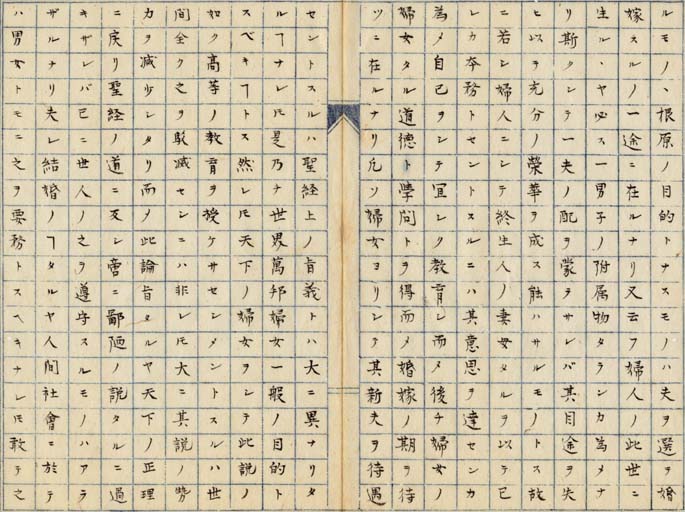 ルモノ、根原ノ目的トナスモノハ夫ヲ選ヒ婚
嫁スルノ一途ニ在ルナリ又云フ婦人ノ此世ニ
生ル、ヤ必ス一ニ男子ノ附属物タランカ為メナ
リ斯クシテ一夫ノ配ヲ蒙ラサレバ其目途ヲ失
ヒ以ヲ充分ノ榮華ヲ成ス能ハサルモノトス故
ニ若シ婦人ニシテ終生人ノ妻母タルヲ以テ已
レカ本務トセントスルニハ其意思ヲ達センカ
為メ自己ヲシテ宜シク教育シ而メ後チ婦女ノ
婦女タル道德ト學問トヲ得而メ婚嫁ノ期ヲ待
ツニ在ルナリ凡ソ婦女ヨリシテ其新夫ヲ待遇
セントスルハ聖経上ノ旨義トハ大ニ異ナリタ
ルヿナレ𪜈是乃チ世界萬邦婦女一般ノ目的ト
スベキヿトス然レ𪜈天下ノ婦女ヲシテ此説ノ
如ク高等ノ教育ヲ授ケサセンメントスルハ世
間全ク之ヲ駁滅センニハ非レ𪜈大ニ其説ノ勢
力ヲ減少シタリ而メ此論旨タルヤ天下ノ正理
ニ戻リ聖経ノ道ニ反シ啻ニ鄙陋ノ説タルニ過
キザレバ已ニ世人ノ之ヲ遵守スルモノハアラ
ザルナリ夫レ結婚ノヿタルヤ人間社會ニ於テ
ハ男女トモニ之ヲ要務トスヘキナレ𪜈敢テ之